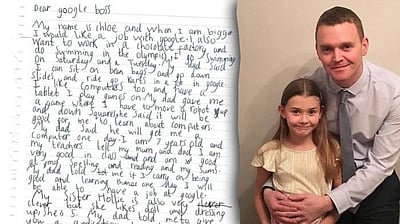 Dear google boss
My name is chloe and when I am bigger
I would like a job with google. I also
want to work in a chocolate factory and
do swimming in the olympics. I go swimming
on Saturday and a Tuesday. My dad said
I can sit on bean bags and go down
slides and ride go karts in a job in google
I like computers too and have a
tablet I play games on. My dad gave me
a game where I have to move a robot up
and down squares, he said it will be
good for me to learn about computers.
My dad said he will get me a
computer one day. I am 7 years old and
my teachers tell my mum and dad I am
very good in class and am good
at my spelling and reading and my sums.
My dad told me if I carry on being
good and learning then one day I will
be able to have a job at google.
My sister Hollie is also very
clever but she likes dressing
up, she is 5. My dad told me to